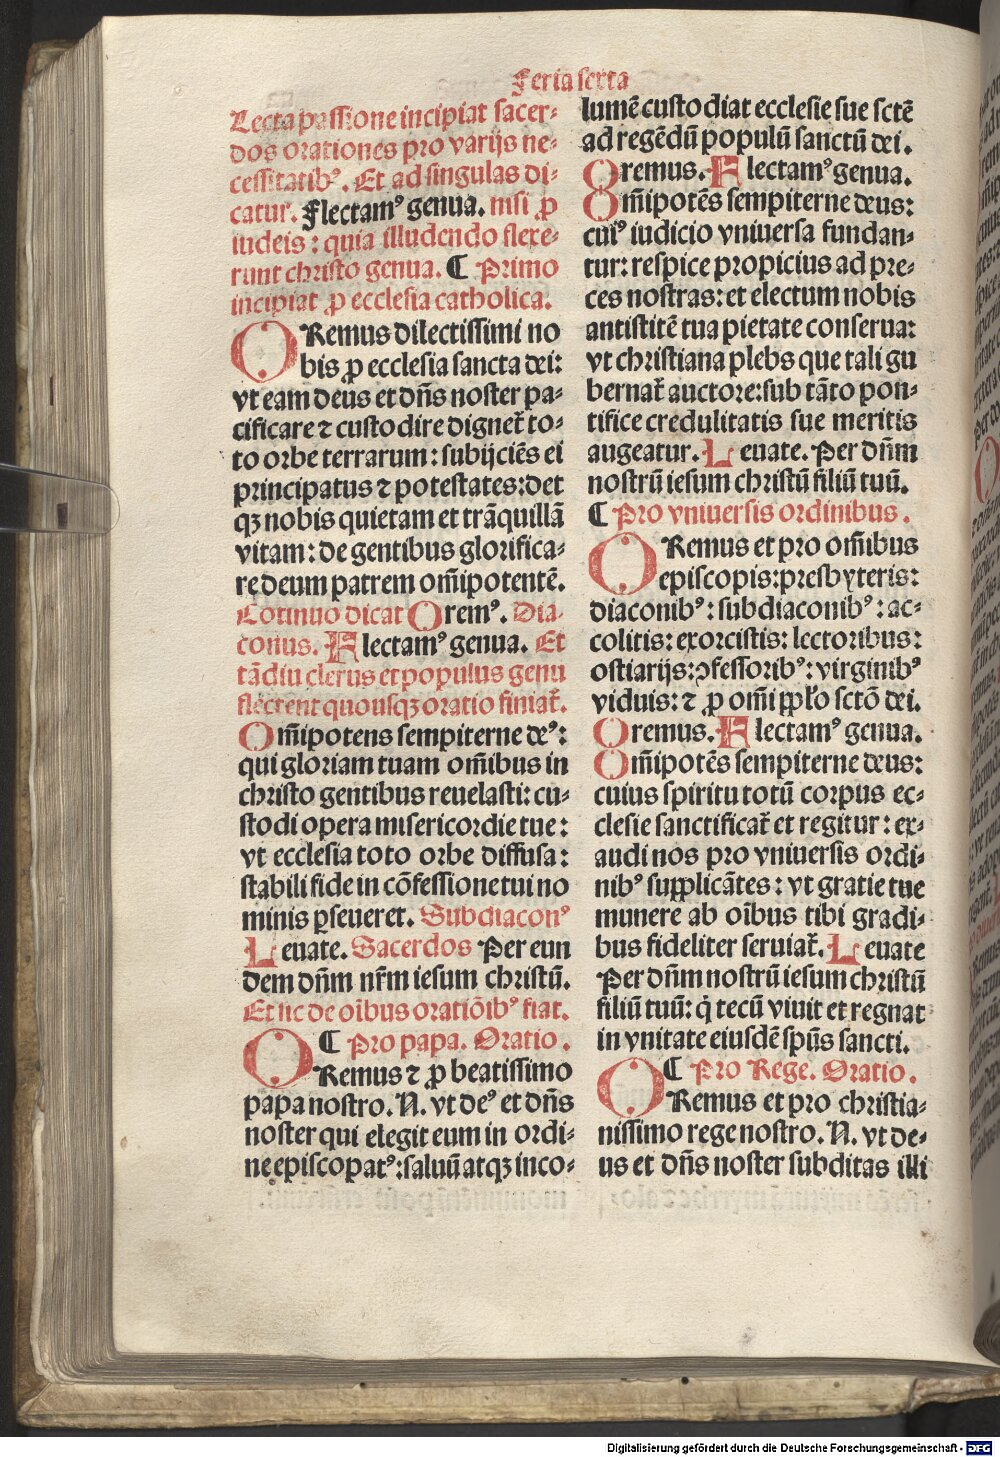 Feria sexta
Lecta passione incipiat sacer⸗
dos orationes pro varijs ne⸗
cessitatibꝰ. Et ad singulas di⸗
catur. Flectamꝰ genua. nisi ꝓ
iudeis: quia illudendo flexe⸗
runt christo genua. ¶ Primo
incipiat ꝓ ecclesia catholica.
ORemus dilectissimi no
bis ꝓ ecclesia sancta dei:
vt eam deus et dn̄s noster pa⸗
cificare ⁊ custodire dignet᷑ to⸗
to orbe terrarum: subijciēs ei
principatus ⁊ potestates: det
qꝫ nobis quietam et trāquillā
vitam: de gentibus glorifica⸗
re deum patrem om̄ipotentē.
Cōtinuo dicat Oremꝰ. Dia⸗
conus. Flectamꝰ genua. Et
tādiu clerus et populus genu
flectent quousqꝫ oratio finiat᷑.
Om̄ipotens sempiterne deꝰ:
qui gloriam tuam om̄ibus in
christo gentibus reuelasti: cu⸗
stodi opera misericordie tue:
vt ecclesia toto orbe diffusa:
stabili fide in cōfessione tui no
minis ꝑseueret. Subdiaconꝰ
Leuate. Sacerdos Per eun
dem dn̄m nr̄m iesum christū.
Et sic de oībus oratiōibꝰ fiat.
¶ Pro papa. Oratio.
ORemus ⁊ ꝓ beatissimo
papa nostro. N. vt deꝰ et dn̄s
noster qui elegit eum in ordi⸗
ne episcopatꝰ: saluū atqꝫ inco⸗
lumē custodiat ecclesie sue sctē
ad regēdū populū sanctū dei.
Oremus. Flectamꝰ genua.
Om̄ipotēs sempiterne deus:
cuiꝰ iudicio vniuersa fundan⸗
tur: respice propicius ad pre⸗
ces nostras: et electum nobis
antistitē tua pietate conserua:
vt christiana plebs que tali gu
bernat᷑ auctore: sub tāto pon⸗
tifice credulitatis sue meritis
augeatur. Leuate. Per dn̄m
nostrū iesum christū filiū tuū.
¶ Pro vniuersis ordinibus.
ORemus et pro om̄ibus
episcopis: presbyteris:
diaconibꝰ: subdiaconibꝰ: ac⸗
colitis: exorcistis: lectoribus:
ostiarijs: ꝯfessoribꝰ: virginibꝰ
viduis: ⁊ ꝓ om̄i pp̄lo sctō dei.
Oremus. Flectamꝰ genua.
Om̄ipotēs sempiterne deus:
cuius spiritu totū corpus ec⸗
clesie sanctificat᷑ et regitur: ex⸗
audi nos pro vniuersis ordi⸗
nibꝰ supplicātes: vt gratie tue
munere ab oībus tibi gradi⸗
bus fideliter seruiat᷑. Leuate
Per dn̄m nostrū iesum christū
filiū tuū: q̇ tecū viuit et regnat
in vnitate eiusdē sp̄us sancti.
¶ Pro Rege. Oratio.
ORemus et pro christia⸗
nissimo rege nostro. N. vt de⸗
us et dn̄s noster subditas illi
Digitalisierung gefördert durch die Deutsche Forschungsgemeinschaft - DFG